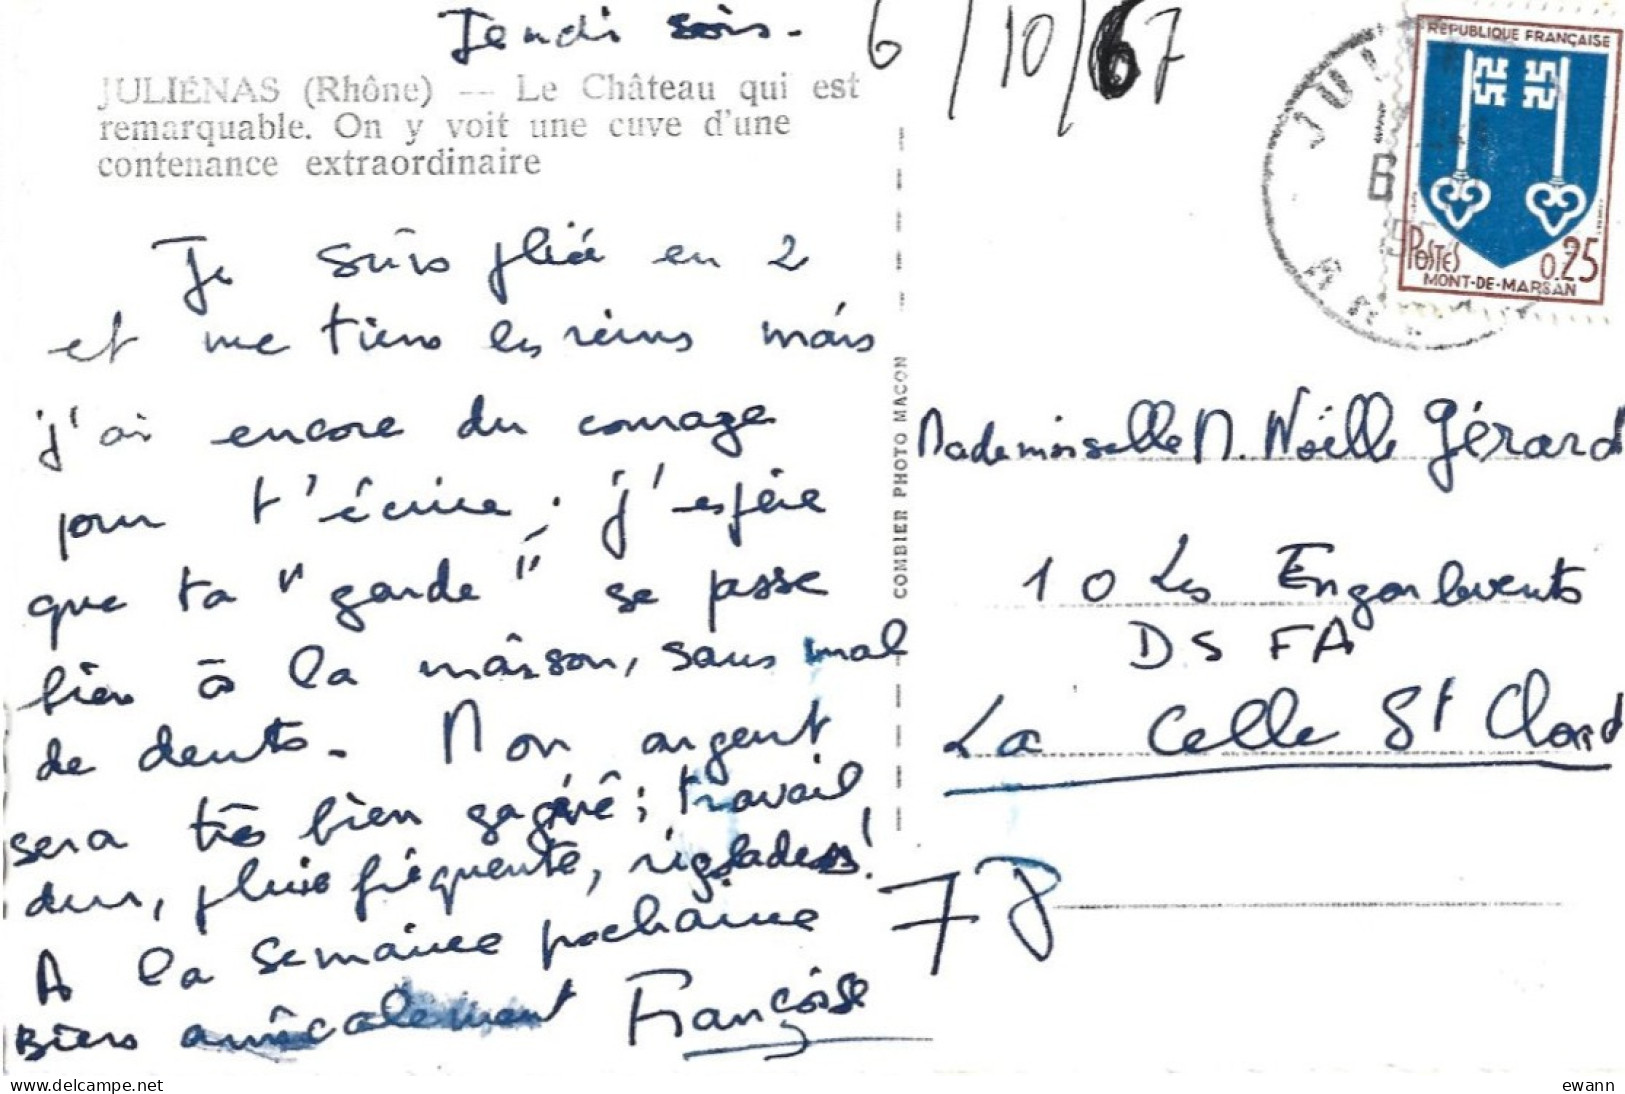 Jeudi soir.
6/10/67
JULIÉNAS (Rhône) — Le Château qui est
remarquable. On y voit une cuve d'une
contenance extraordinaire
Je suis pliée en 2
et me tiens les reins mais
j'ai encore du courage
pour t'écrire ; j'espère
que ta "garde" se passe
bien à la maison, sans mal
de dents. Mon argent
sera très bien gagné ; travail
dur, pluie fréquente, rigolades !
A la semaine prochaine
Bien amicalement Françoise
COMBIER PHOTO MACON
RÉPUBLIQUE FRANÇAISE
POSTES 0.25
MONT-DE-MARSAN
Mademoiselle M. Noëlle Gérard
10 Les Engoulevents
DS FA
La Celle St Cloud
78
delcampe.net
ewann